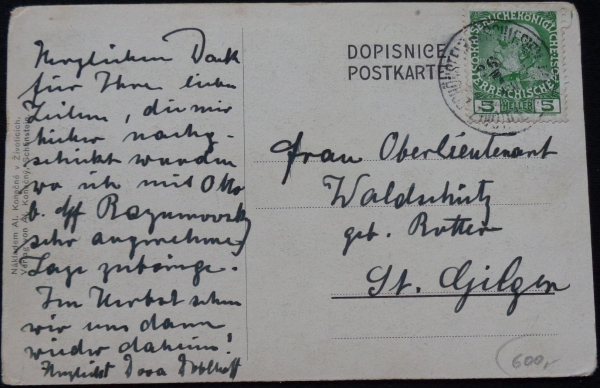 Herzlichen Dank
für Ihre lieben
Zeilen, die mir
hieher nachge-
schickt wurden
wo ich mit Otto
b. Razumovsky
sehr angenehme
Tage zubringe.
Im Herbst sehen
wir uns dann
wieder daheim!
Herzlichst Dora Doblhoff
Nákladem Al. Konečné v Životicích.
Verlag von Al. Konečný,
DOPISNICE
POSTKARTE
KAISERLICHEKÖNIGLICHE
ÖSTERREICHISCHE
5 HELLER 5
Frau Oberlieutenant
Waldschütz
geb. Rotter
St. Gilgen
600,-